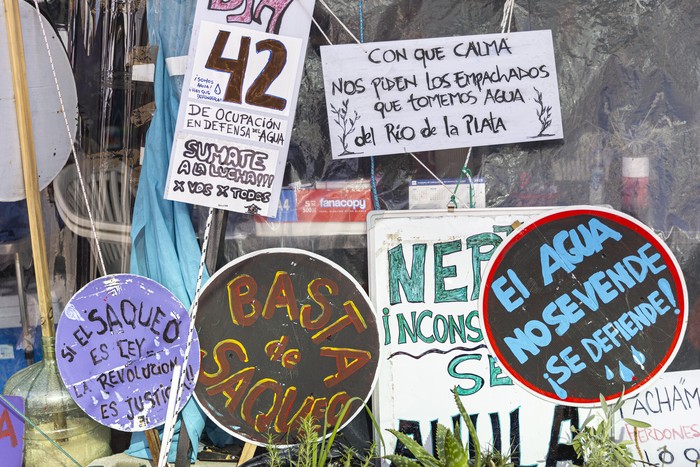 42
¡SOMOS
AGUA!
DE OCUPACIÓN
EN DEFENSA DEL
AGUA
SUMATE
A LA LUCHA!!!
X VOS X TODES
CON QUE CALMA
NOS PIDEN LOS EMPACHADOS
QUE TOMEMOS AGUA
del Río de la Plata
fanacopy
SI EL SAQUEO
ES LEY
LA REVOLUCIÓN
ES JUSTICIA
BASTA
de
SAQUEO
NEP
INCONS
SE
ANULA
El AGUA
NO SE VENDE
¡SE DEFIENDE!
PACHAM
PERDONES